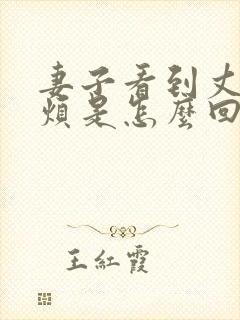 妻子看到丈
煩是怎麼回
王紅霞